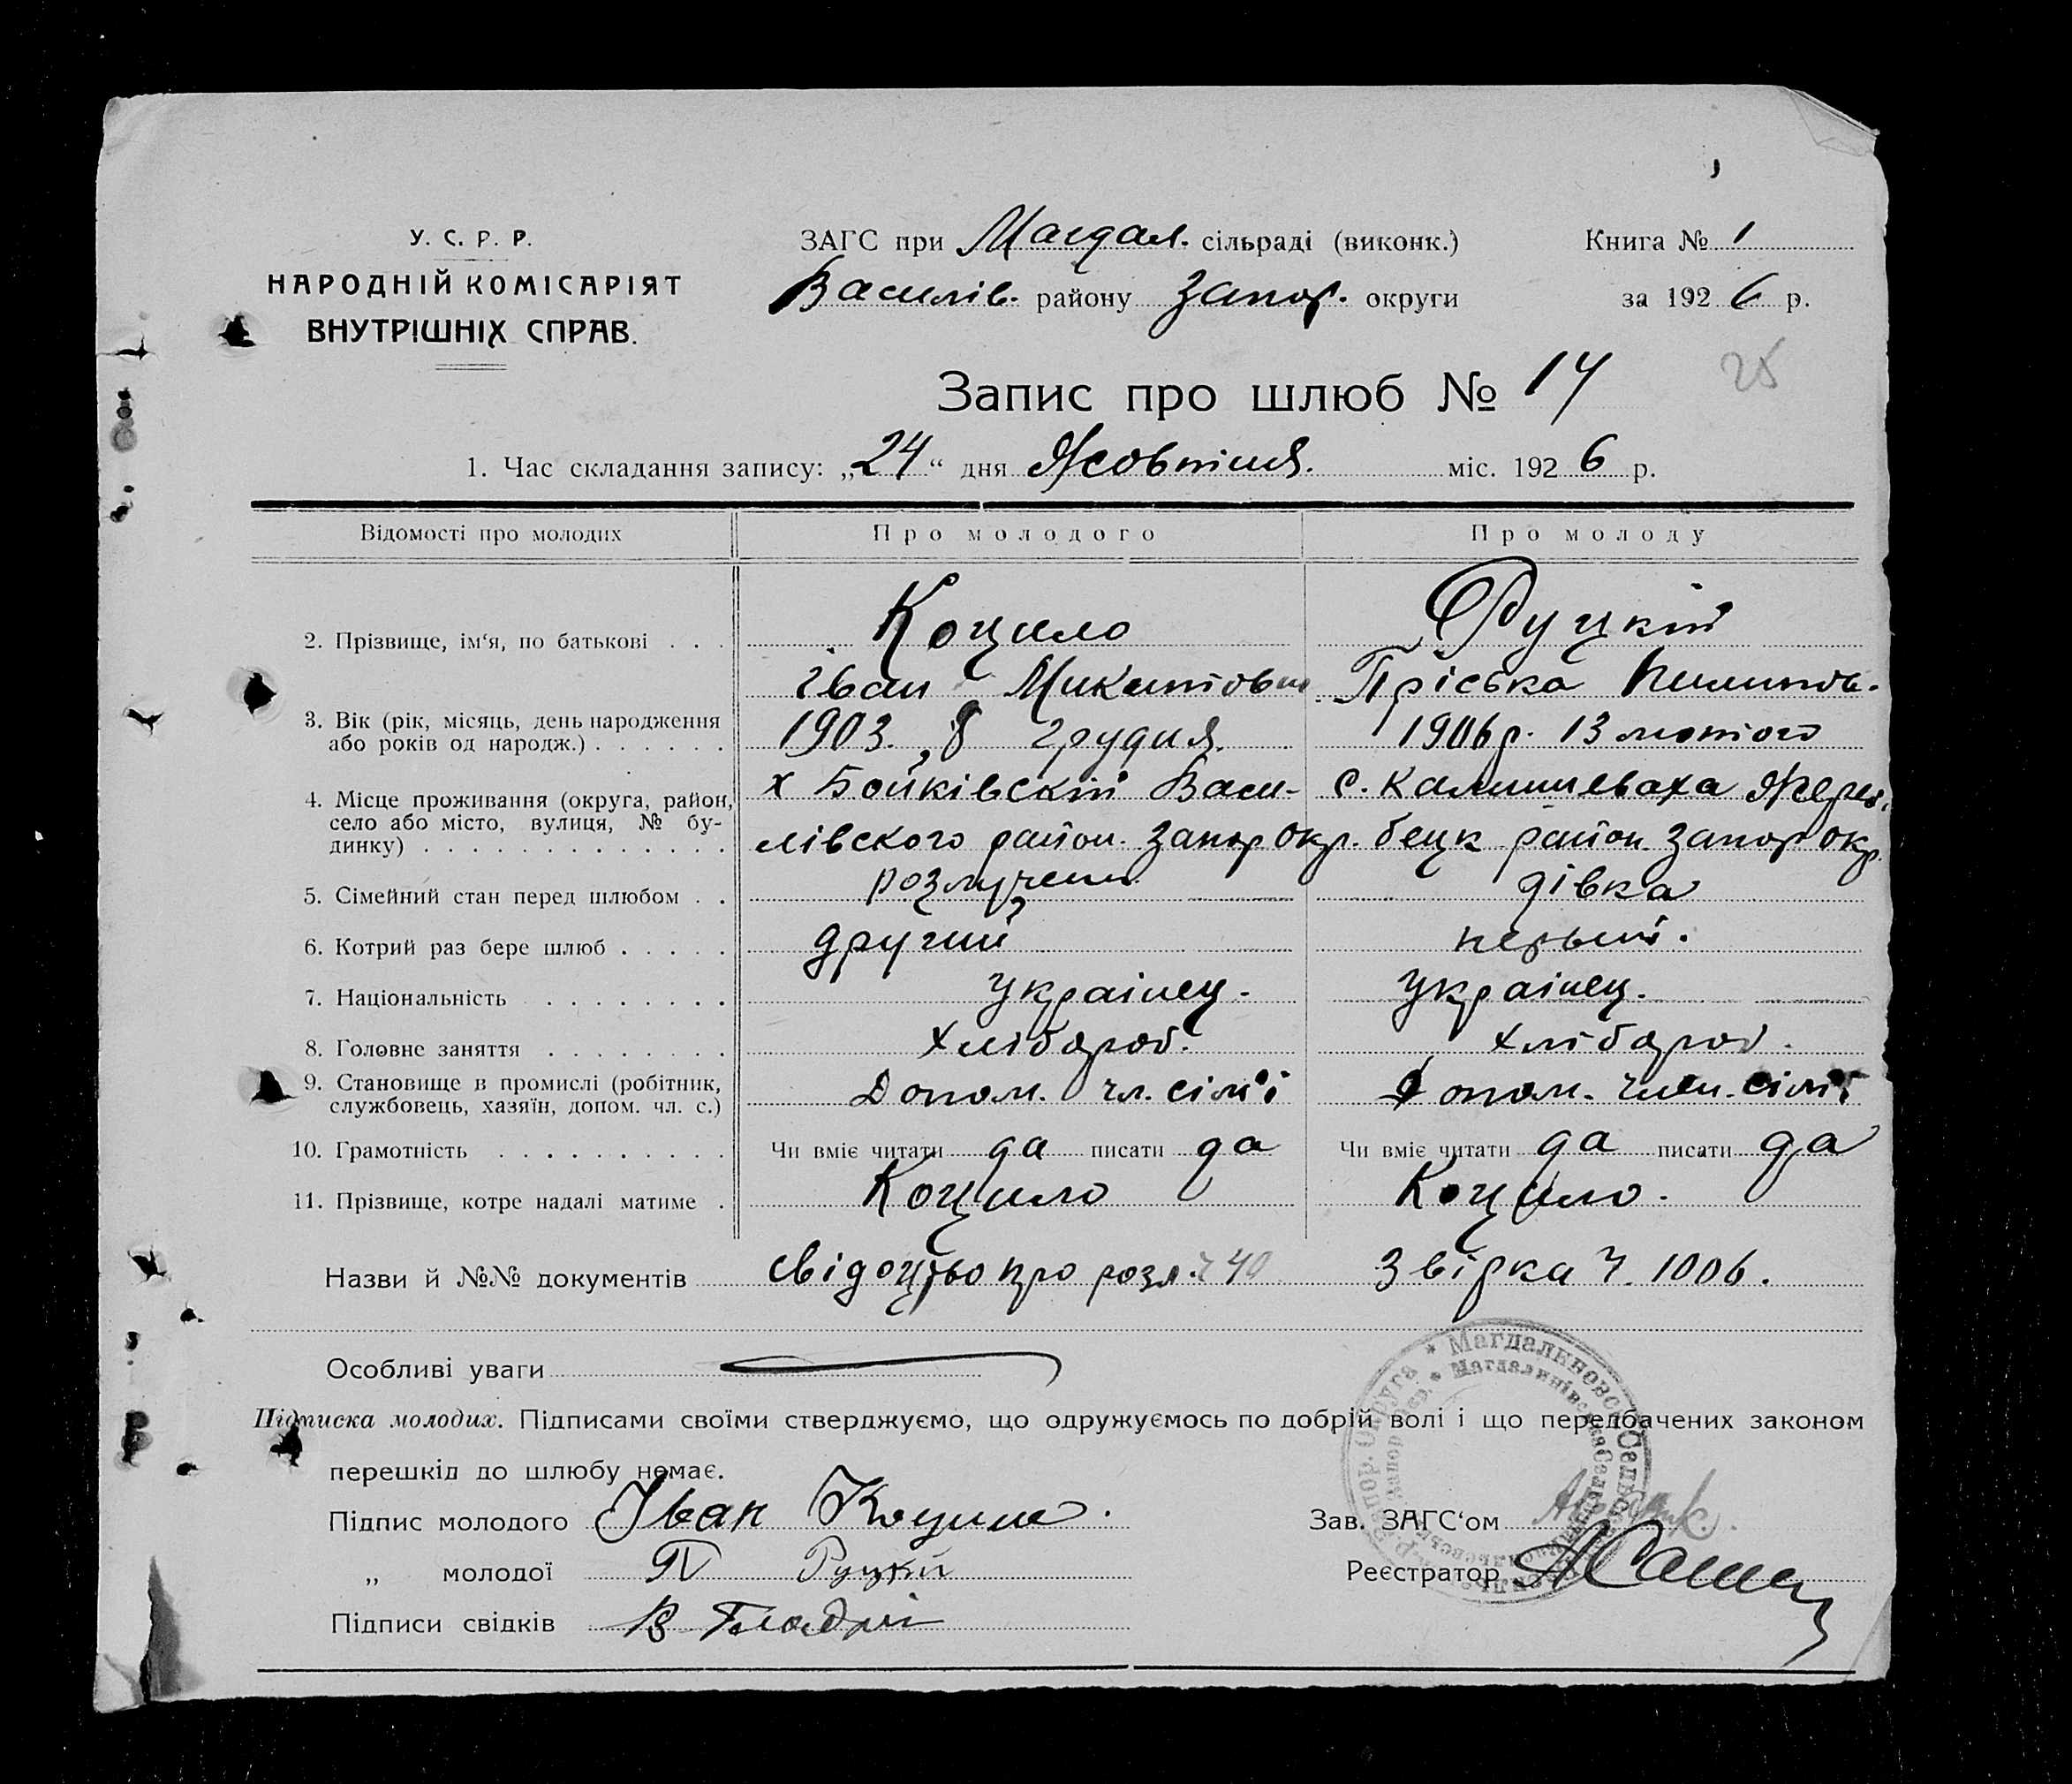 У. С. Р. Р.
НАРОДНІЙ КОМІСАРІЯТ
ВНУТРІШНІХ СПРАВ.
ЗАГС при Магдал. сільраді (виконк.)
Василів. району Запор. округи
Книга № 1
за 1926 р.
25
Запис про шлюб № 14
1. Час складання запису: „24“ дня Жовтня. міс. 1926 р.
Відомості про молодих Про молодого Про молоду
2. Прізвище, ім‘я, по батькові . . . Коцило Руцкій
Іван Микитович Пріська Пилипов.
3. Вік (рік, місяць, день народження
або років од народж.) . . . . . . 1903. 8 грудня. 1906 р. 13 лютого
4. Місце проживання (округа, район,
село або місто, вулиця, № бу-
динку) . . . . . . . . . . . . .
х Бойківскій Васи- с. Камишеваха Жереб.
лівского район. Запор окр. бецк район. Запор окр.
5. Сімейний стан перед шлюбом . . розлучений дівка
6. Котрий раз бере шлюб . . . . . другий первий.
7. Національність . . . . . . . . українец. українец.
8. Головне заняття . . . . . . . . хлібороб. хлібороб.
9. Становище в промислі (робітник,
службовець, хазяїн, допом. чл. с.) Допом. чл. сім'ї Допом. член. сім'ї
10. Грамотність . . . . . . . . . . Чи вміє читати да писати да Чи вміє читати да писати да
11. Прізвище, котре надалі матиме . Коцило Коцило.
Назви й №№ документів свідоцтво про розл. ч 40 Звірка Ч. 1006.
Особливі уваги
Підписка молодих. Підписами своїми стверджуємо, що одружуємось по добрій волі і що передбачених законом
перешкід до шлюбу немає.
Підпис молодого Іван Коцило.
„ молодої П Руцкій
Підписи свідків В
Зав. ЗАГС‘ом
Реєстратор